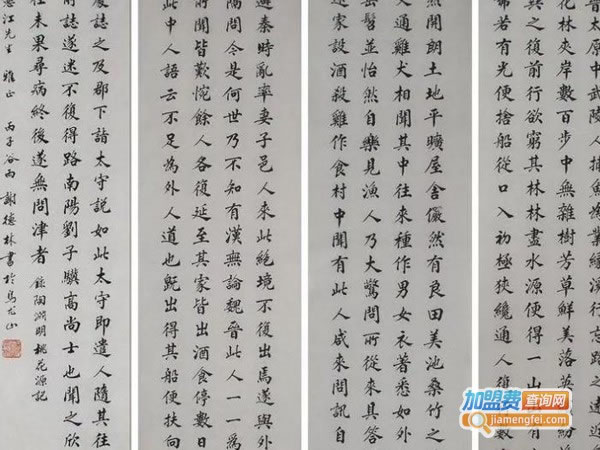 太原中武陵人捕魚為業緣溪
花林夾岸數百步中無雜樹芳草鮮美落英
異之復前行欲窮其林林盡水源便得一山
若有光便捨船從口入初極狹纔通人復
然開朗土地平曠屋舍儼然有良田美池桑竹之
交通雞犬相聞其中往來種作男女衣著悉如外
髫並怡然自樂見漁人乃大驚問所從來具答
還家設酒殺雞作食村中聞有此人咸來問訊自
避秦時亂率妻子邑人來此絕境不復出焉遂與外
隔問今是何世乃不知有漢無論魏晉此人一一為
所聞皆歎惋餘人各復延至其家皆出酒食停數日
此中人語云不足為外人道也既出得其船便扶向
處誌之及郡下詣太守說如此太守即遣人隨其往
所誌遂迷不復得路南陽劉子驥高尚士也聞之欣
往未果尋病終後遂無問津者 錄陶淵明桃花源記
江先生 雅正 丙子谷雨 謝德林書於 山
加盟费查询网
jiamengfei.com